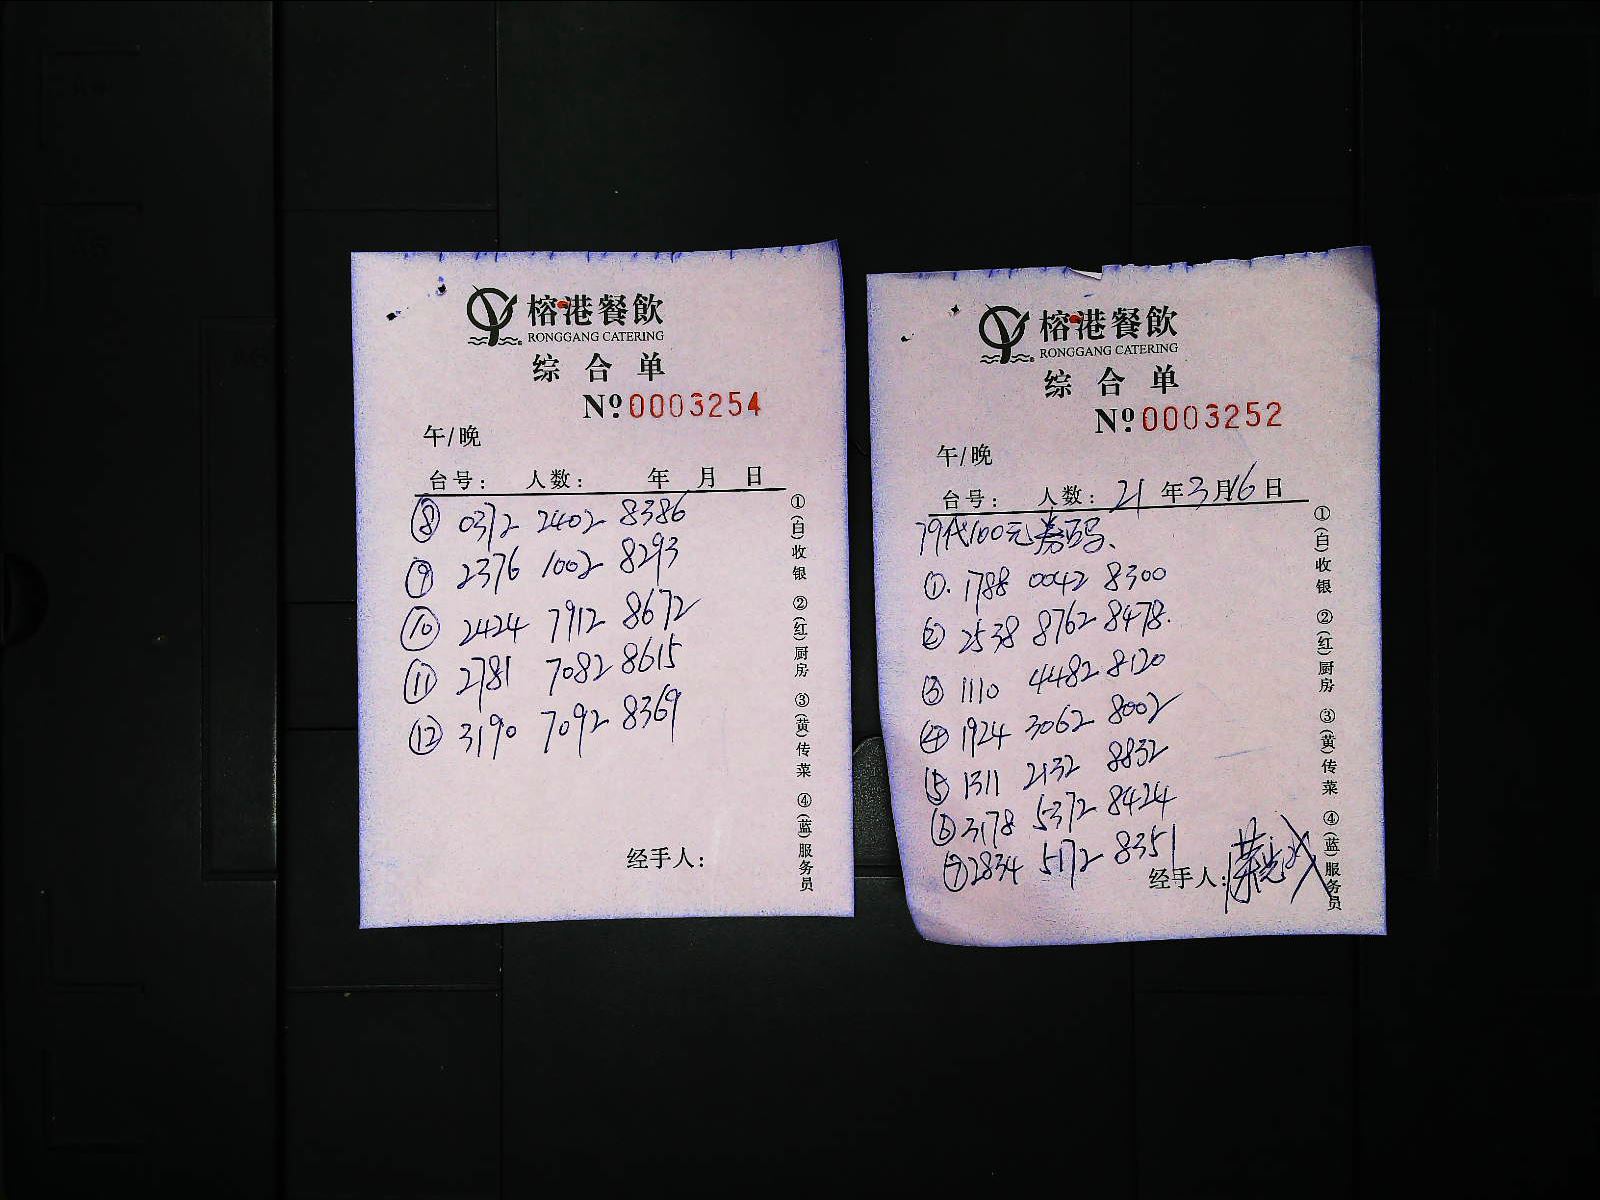 榕港餐飲
RONGGANG CATERING
综合单
Nº:0003254
午/晚
台号: 人数: 年 月 日
⑧ 0372 2402 8386
⑨ 2376 1002 8293
⑩ 2424 7912 8672
⑪ 2781 7082 8615
⑫ 3190 7092 8369
经手人:
①(白)收银 ②(红)厨房 ③(黄)传菜 ④(蓝)服务员
榕港餐飲
RONGGANG CATERING
综合单
Nº:0003252
午/晚
台号: 人数: 21 年 3 月 16 日
79代100元券码、
①. 1788 0042 8300
② 2538 8762 8478.
③ 1110 4482 8120
④ 1924 3062 8002
⑤ 1311 2132 8832
⑥ 3178 5372 8424
⑦ 2834 5172 8351
经手人:
①(白)收银 ②(红)厨房 ③(黄)传菜 ④(蓝)服务员